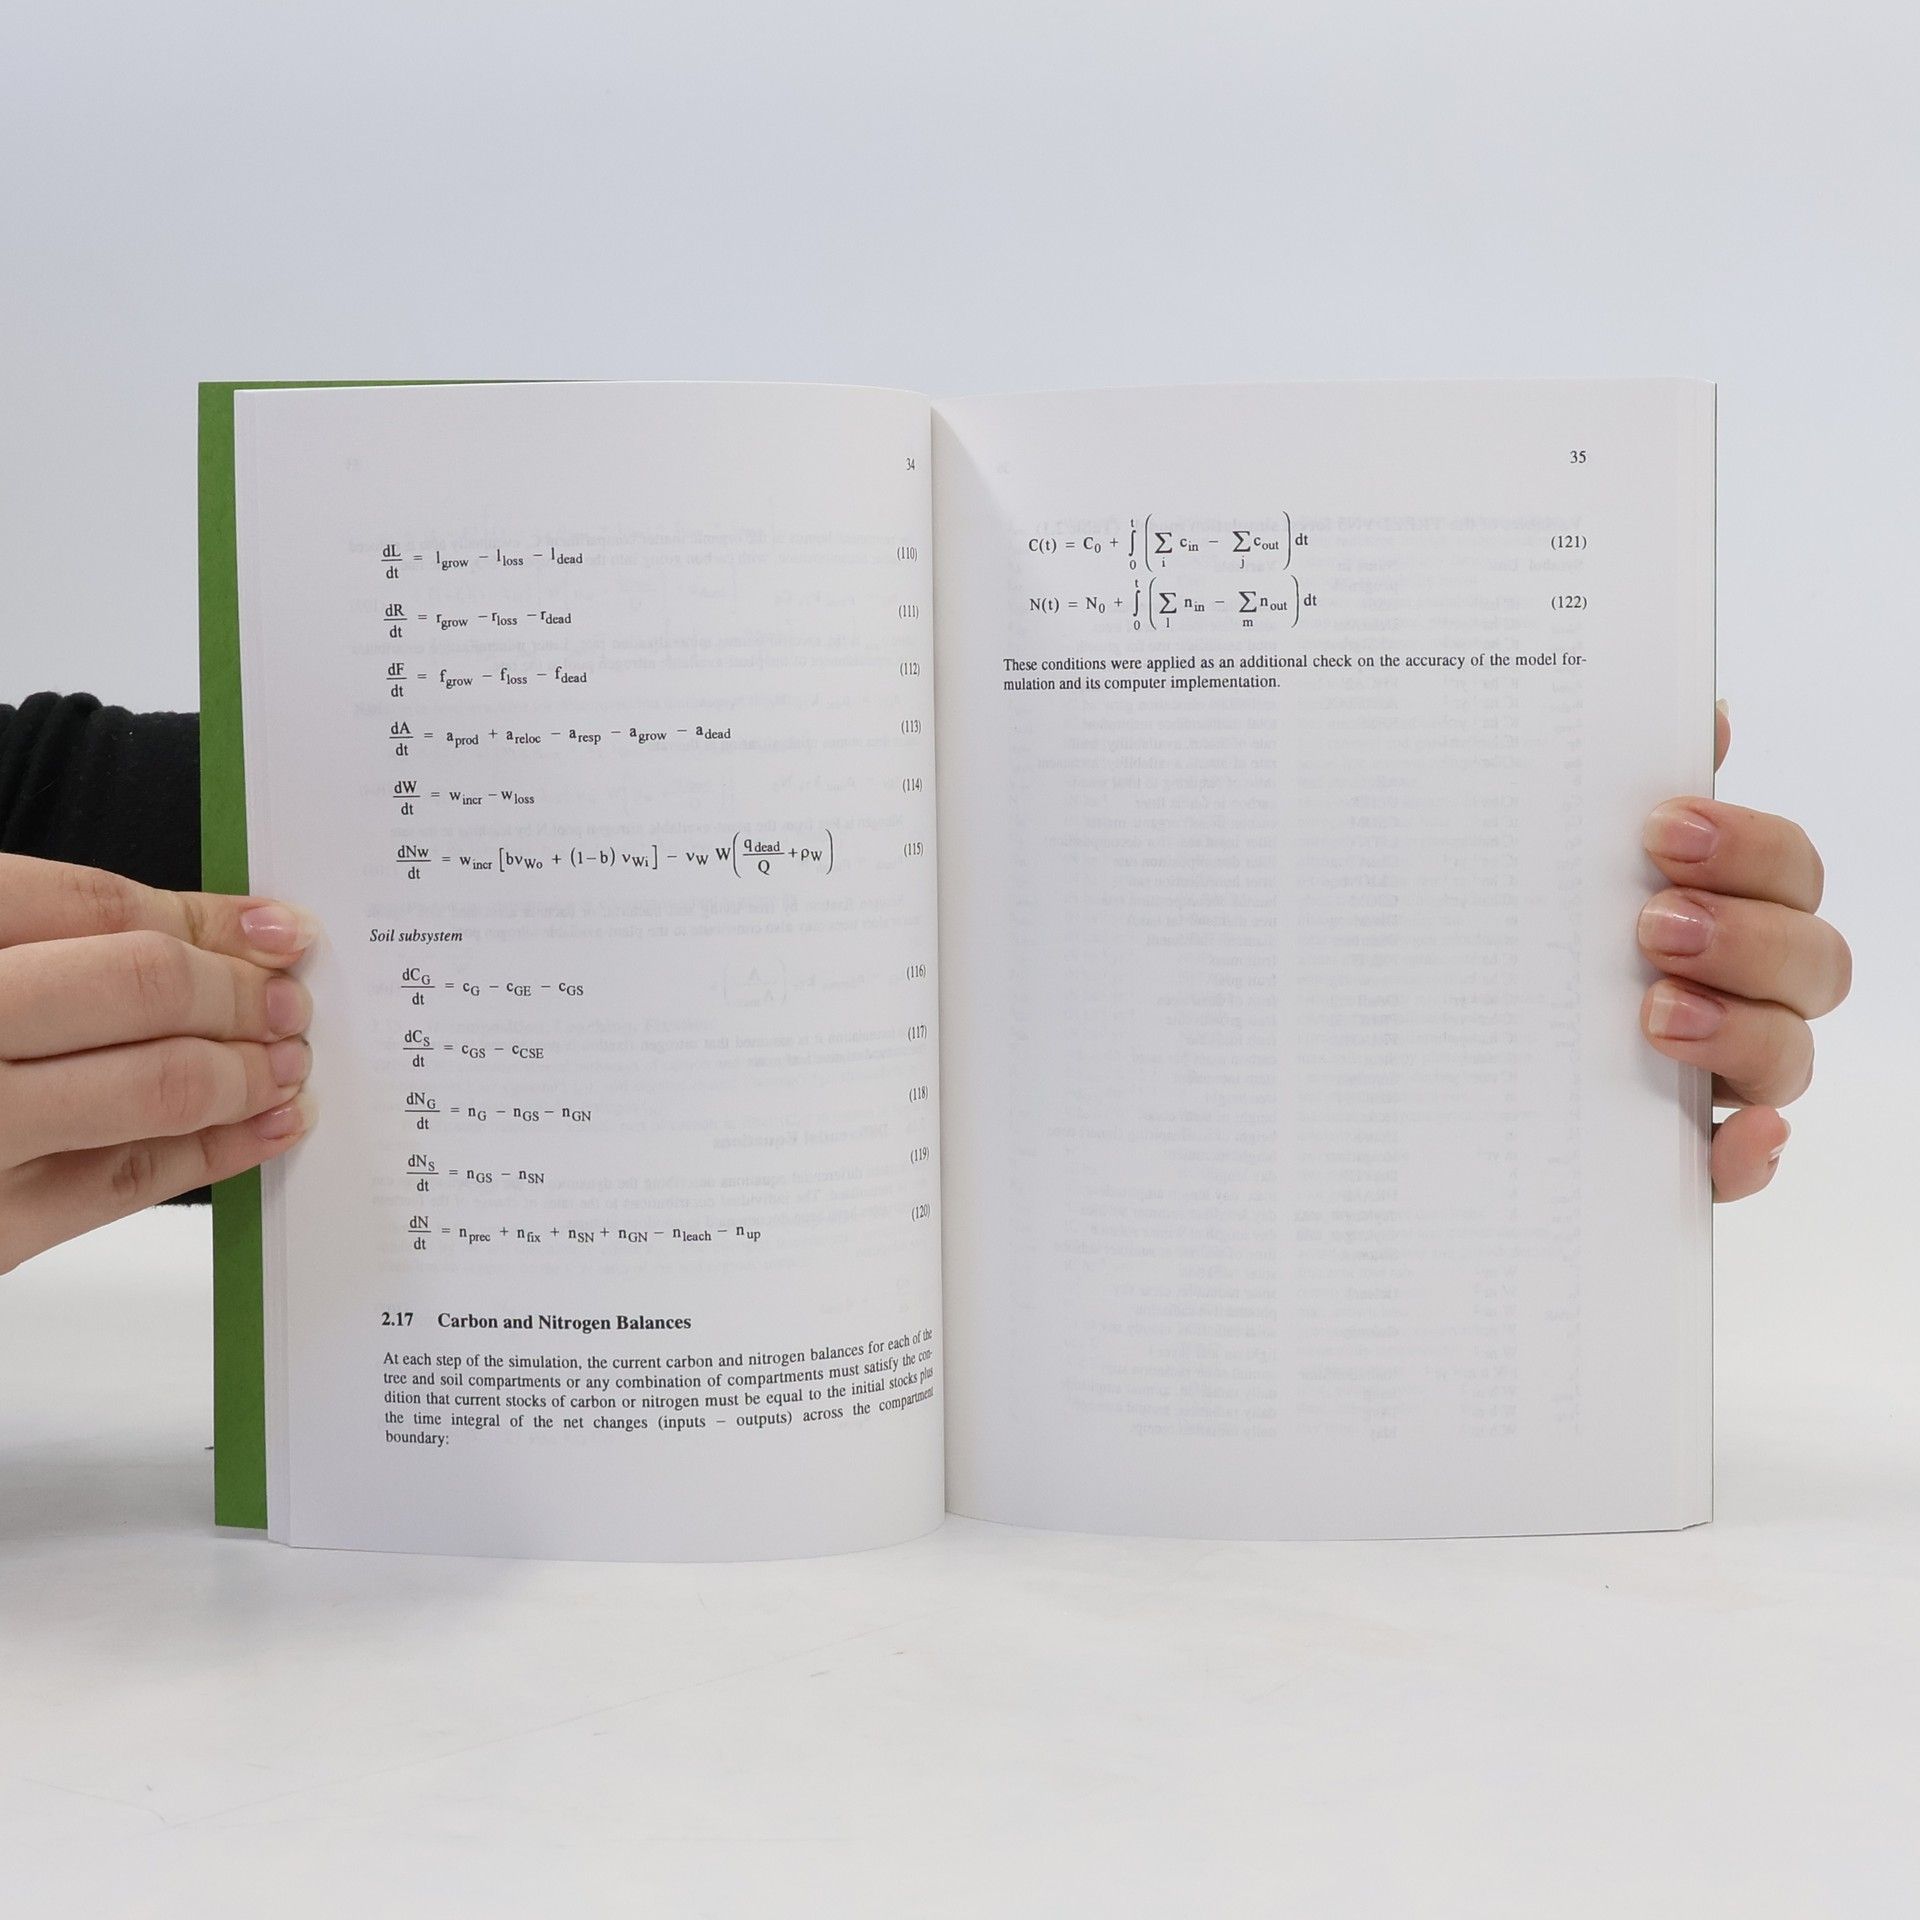 34
dL/dt = l_grow − l_loss − l_dead (110)
dR/dt = r_grow − r_loss − r_dead (111)
dF/dt = f_grow − f_loss − f_dead (112)
dA/dt = a_prod + a_reloc − a_resp − a_grow − a_dead (113)
dW/dt = w_incr − w_loss (114)
dNw/dt = w_incr [bν_Wo + (1−b) ν_Wi] − ν_W W(q_dead/Q + ρ_W) (115)
Soil subsystem
dC_G/dt = c_G − c_GE − c_GS (116)
dC_S/dt = c_GS − c_CSE (117)
dN_G/dt = n_G − n_GS − n_GN (118)
dN_S/dt = n_GS − n_SN (119)
dN/dt = n_prec + n_fix + n_SN + n_GN − n_leach − n_up (120)
2.17 Carbon and Nitrogen Balances
At each step of the simulation, the current carbon and nitrogen balances for each of the
tree and soil compartments or any combination of compartments must satisfy the con-
dition that current stocks of carbon or nitrogen must be equal to the initial stocks plus
the time integral of the net changes (inputs − outputs) across the compartment
boundary:
35
C(t) = C_0 + ∫_0^t (Σ_i c_in − Σ_j c_out) dt (121)
N(t) = N_0 + ∫_0^t (Σ_l n_in − Σ_m n_out) dt (122)
These conditions were applied as an additional check on the accuracy of the model for-
mulation and its computer implementation.